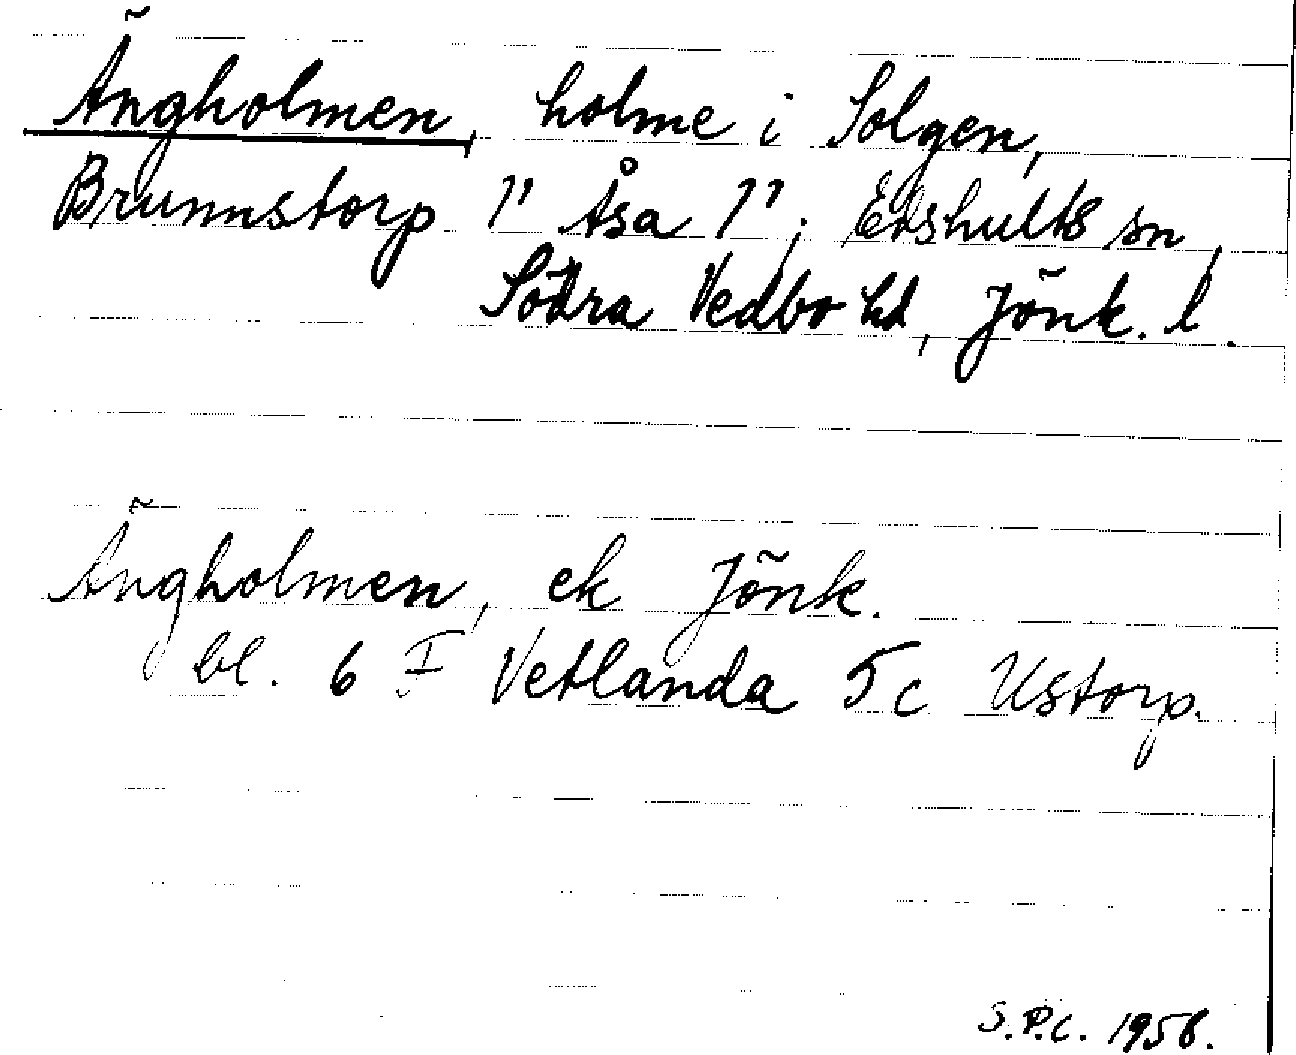 Ängholmen, holme i Solgen,
Brunnstorp 1" Åsa 1"; Edshults sn,
Södra Vedbo hd, Jönk. l.
Ängholmen, ek Jönk.
bl. 6 I Vetlanda 5 c Ustorp.
S.P.C. 1956.